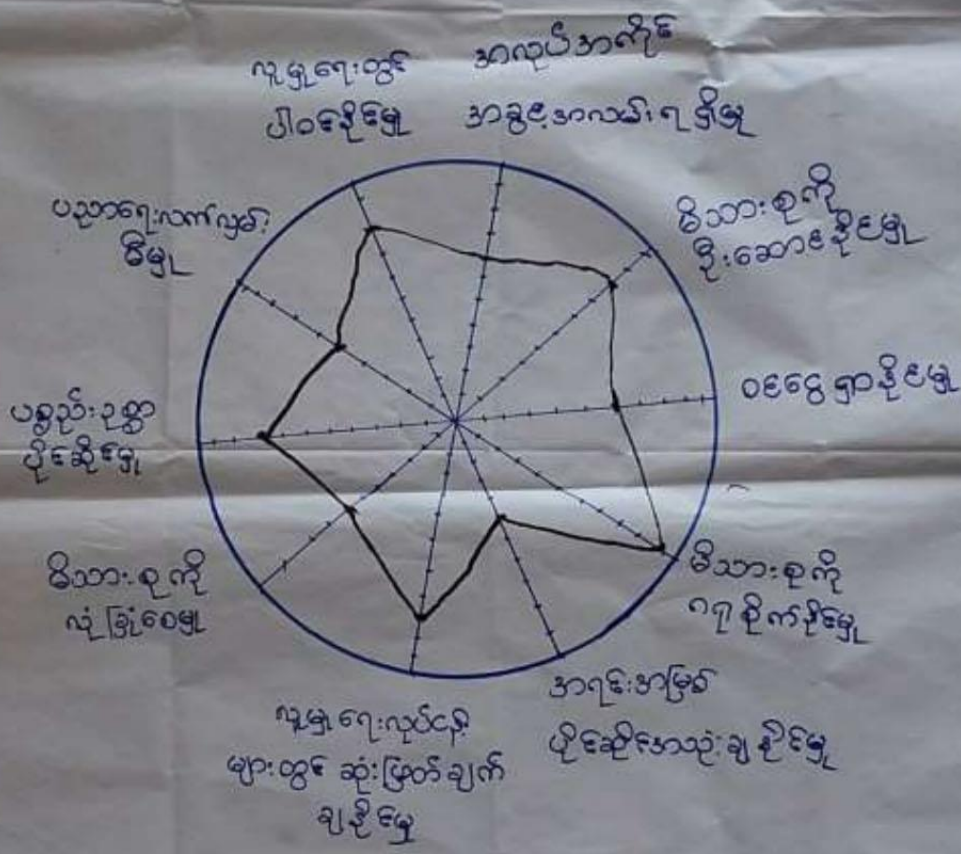 လူမှုရေးတွင်
ပါဝင်နိုင်မှု
အလုပ်အကိုင်
အခွင့်အလမ်းရရှိမှု
မိသားစုကို
ဦးဆောင်နိုင်မှု
ဝင်ငွေရှာနိုင်မှု
မိသားစုကို
ဂရုစိုက်နိုင်မှု
အရင်းအမြစ်
ပိုင်ဆိုင်အသုံးချနိုင်မှု
လူမှုရေးလုပ်ငန်း
များတွင် ဆုံးဖြတ်ချက်
ချနိုင်မှု
မိသားစုကို
လုံခြုံစေမှု
ပစ္စည်းဥစ္စာ
ပိုင်ဆိုင်မှု
ပညာရေးလက်လှမ်း
မီမှု